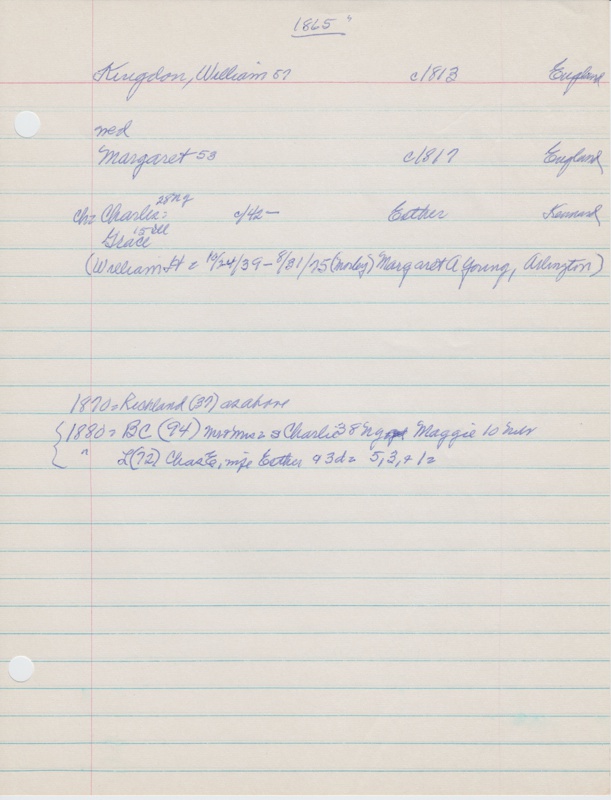 1865 "
Kingdon, William 57 c1813 England
med
Margaret 53 c1817 England
28 Ng
ch= Charlie: c/42- Esther Kennard
15 Ill
Grace
(William H = 10/24/39-8/31/75 (Morley) Margaret A Young, Arlington)
1870= Richland (37) as above
1880= BC (94) Mr & Mrs = & Charlie 38 Ng Maggie 10
" L(72) Chas E, wife Esther & 3d= 5, 3, + 1=